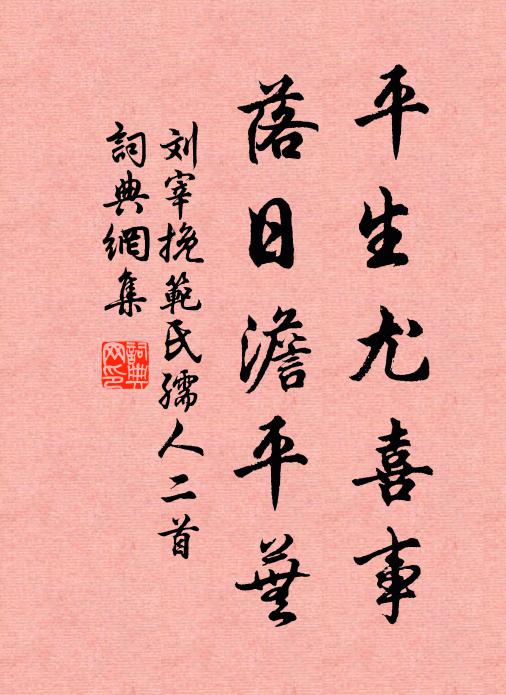 平生尤喜事
落日澹平蕪
刘宰挽範民孺人二首
詞典網集
詞典網印